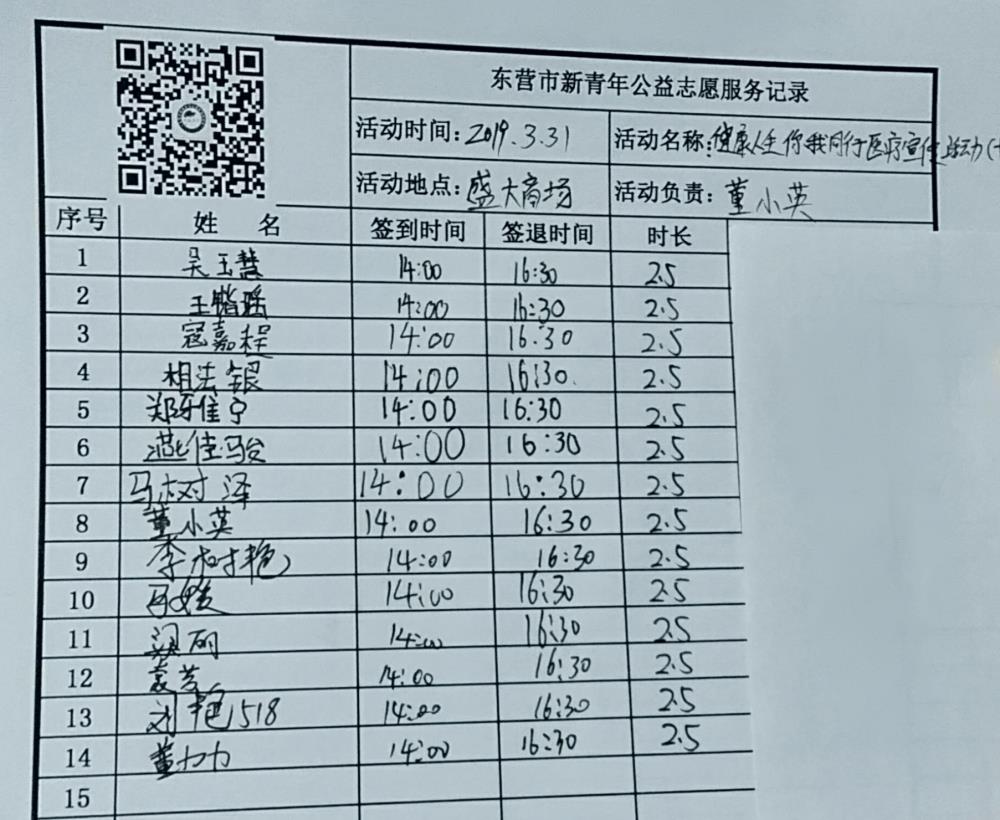 东营市新青年公益志愿服务记录
活动时间：2019.3.31 活动名称：健康人生你我同行医疗宣传活动(十
活动地点：盛大商场 活动负责：董小英
序号 姓 名 签到时间 签退时间 时长
1 吴玉慧 14:00 16:30 2.5
2 王锴瑶 14:00 16:30 2.5
3 寇嘉程 14:00 16.30 2.5
4 相法银 14:00 16:30 2.5
5 郑雅佳宁 14:00 16:30 2.5
6 燕佳骏 14:00 16:30 2.5
7 马树泽 14:00 16:30 2.5
8 董小英 14:00 16:30 2.5
9 李树艳 14:00 16:30 2.5
10 14:00 16:30 2.5
11 梁丽 14:00 16:30 2.5
12 袁芳 14:00 16:30 2.5
13 刘艳1518 14:00 16:30 2.5
14 董力力 14:00 16:30 2.5
15